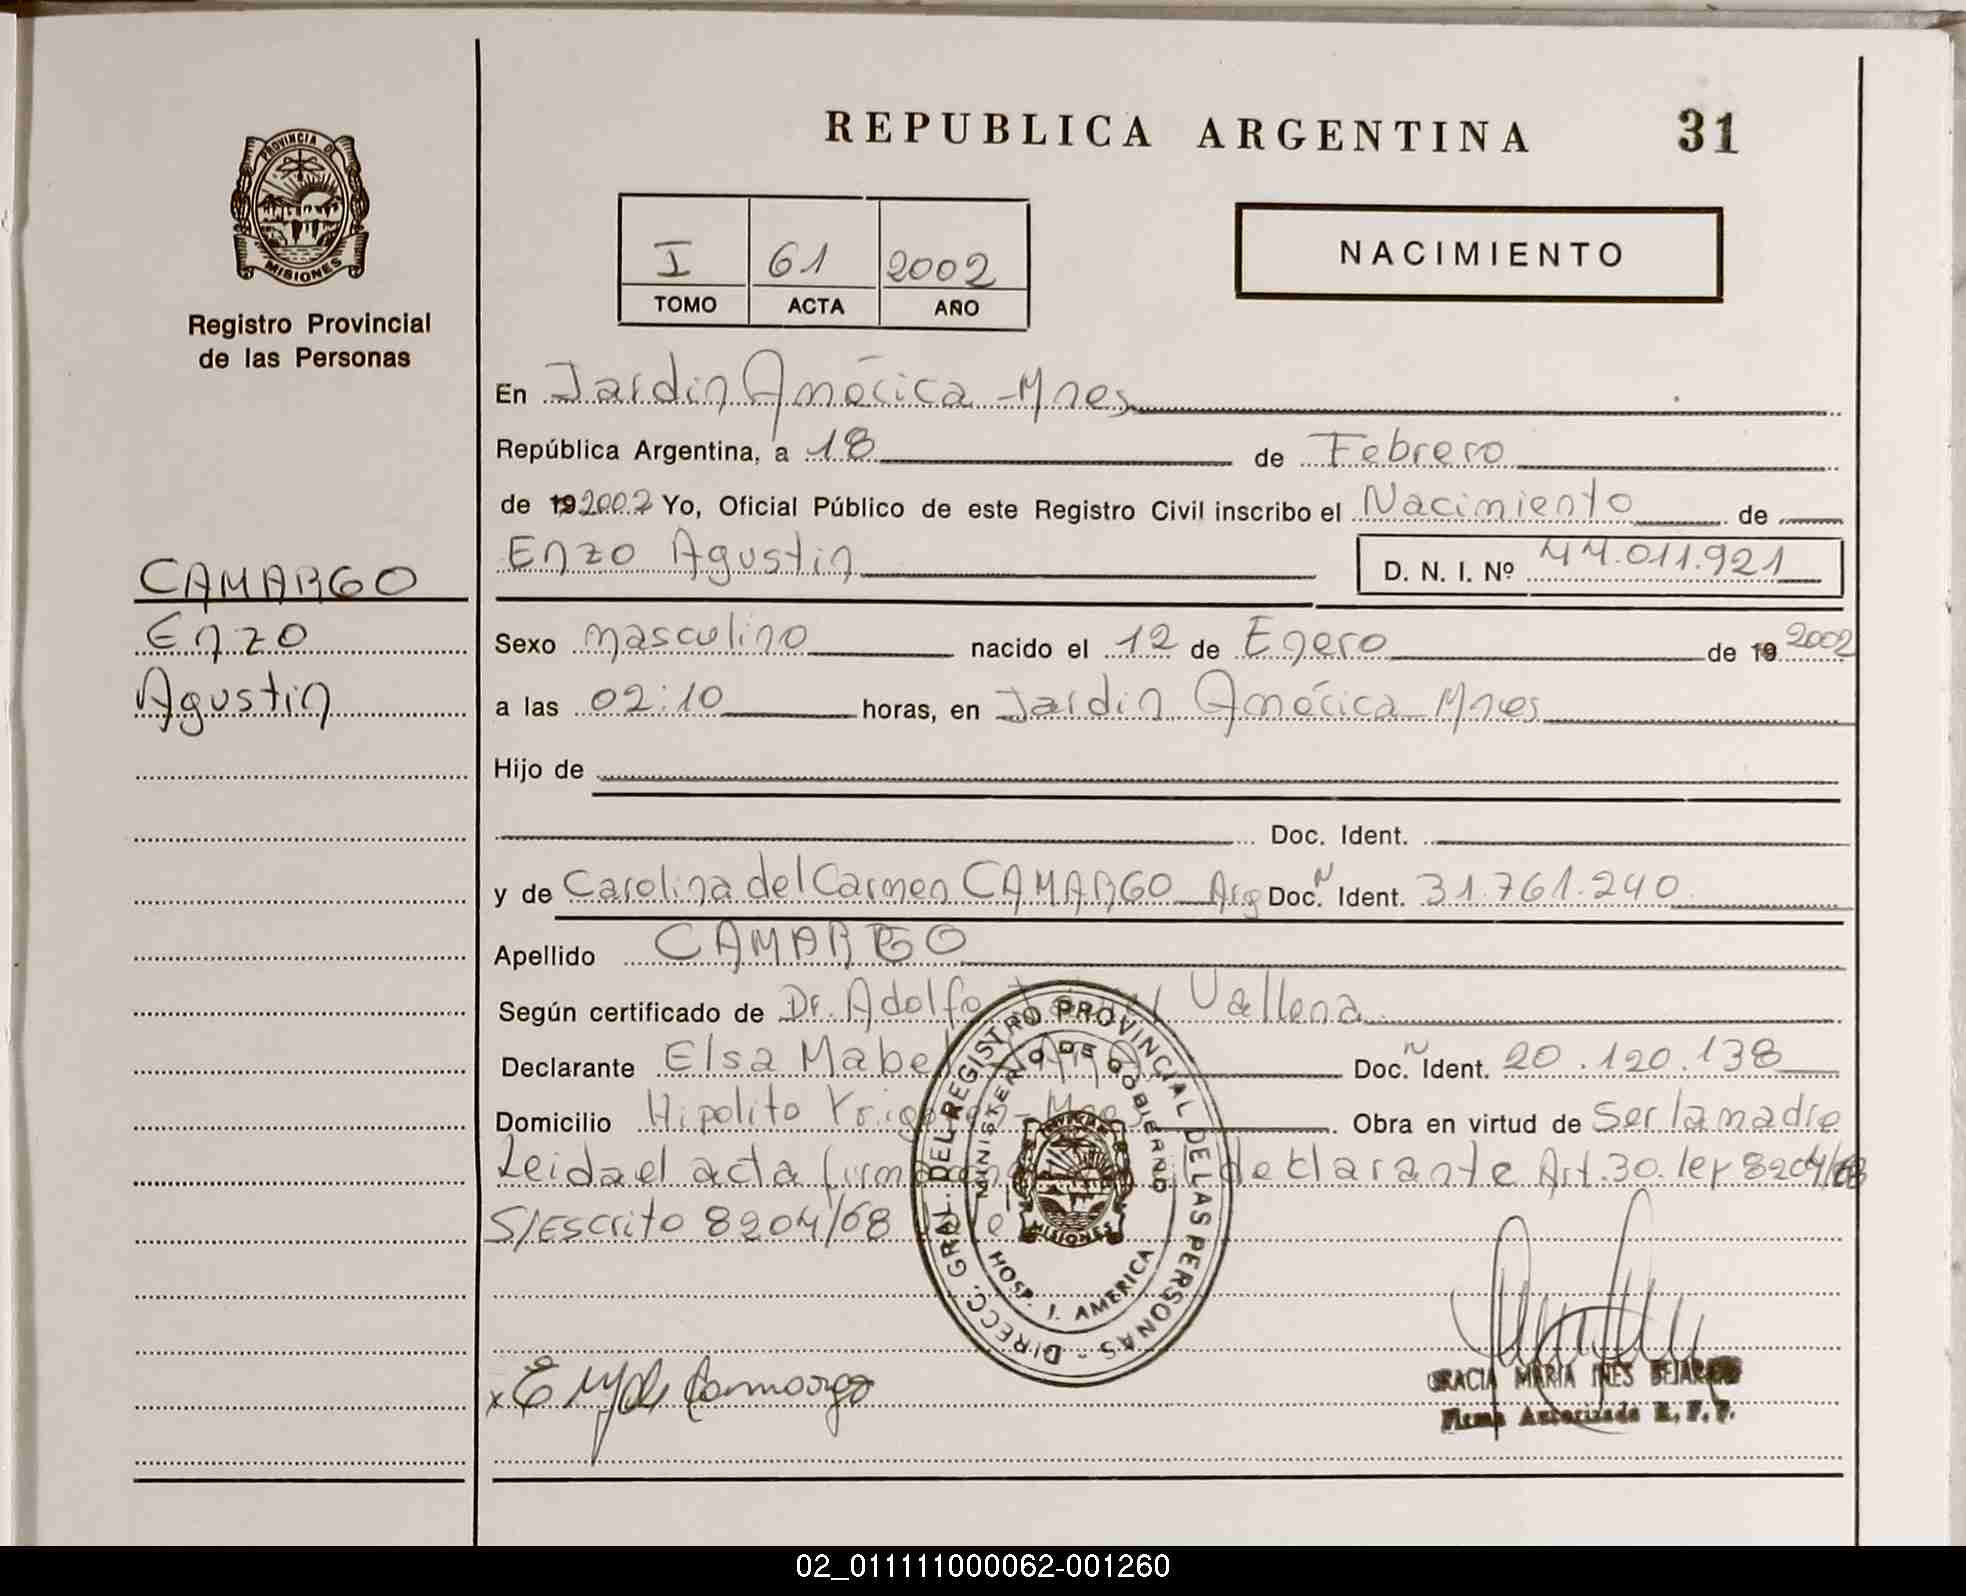 REPUBLICA ARGENTINA 31
PROVINCIA DE
MISIONES
Registro Provincial
de las Personas
I 61 2002
TOMO ACTA AÑO
NACIMIENTO
En Jardín América - Mnes
República Argentina, a 18 de Febrero
de 192002 Yo, Oficial Público de este Registro Civil inscribo el Nacimiento de
Enzo Agustin D. N. I. Nº 44.011.921
CAMARGO
Enzo
Agustin
Sexo masculino nacido el 12 de Enero de 19 2002
a las 02:10 horas, en Jardin América - Mnes
Hijo de
Doc. Ident.
y de Carolina del Carmen CAMARGO Arg Doc. N Ident. 31.761.240
Apellido CAMARGO
Según certificado de Dr. Adolfo Vallena
Declarante Elsa Mabel Doc. N Ident. 20.120.138
Domicilio Hipolito Yrigoyen - Mnes Obra en virtud de Ser la madre
Leida el acta declarante Art. 30. ley 8204/68
S/Escrito 8204/68
DIRECC. GRAL. DEL REGISTRO PROVINCIAL DE LAS PERSONAS -
MINISTERIO DE GOBIERNO
MISIONES
HOSP. J. AMERICA
x Camargo
GRACIA MARIA INES BEJARANO
Firma Autorizada
02_011111000062-001260